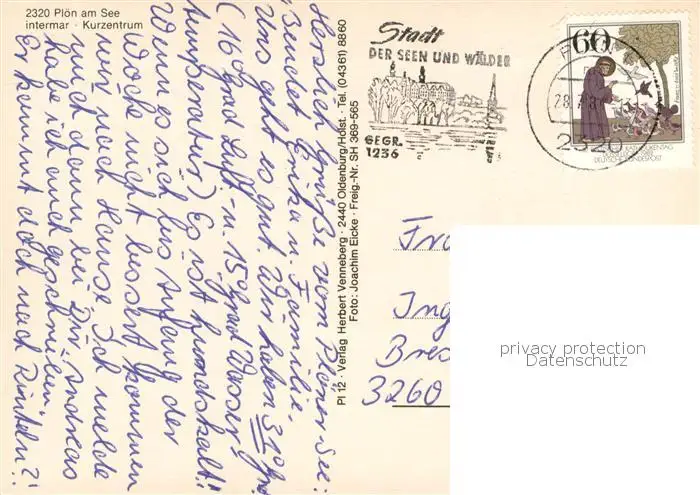 2320 Plön am See
intermar · Kurzentrum
Herzliche Grüße vom Plöner-See:
sendet Erika u. Familie.
Uns geht es gut. Wir haben
(16 grad Luft- u. 15 grad Wasser,
temperatur) Es ist hundskalt!!
Wenn es sich bis Anfang der
Woche nicht bessert kommen
wir nach Hause. Ich melde
mich dann bei Dir. Andreas
habe ich auch geschrieben,
Er kommt doch nach Rinteln?!
Pl 12 · Verlag Herbert Venneberg · 2440 Oldenburg/Holst. · Tel. (04361) 8860
Foto: Joachim Eicke · Freig.-Nr. SH 369-565
Stadt
DER SEEN UND WÄLDER
GEGR.
1236
60
2320
DEUTSCHE BUNDESPOST
Fra
Ing
Bre
3260
privacy protection
Datenschutz